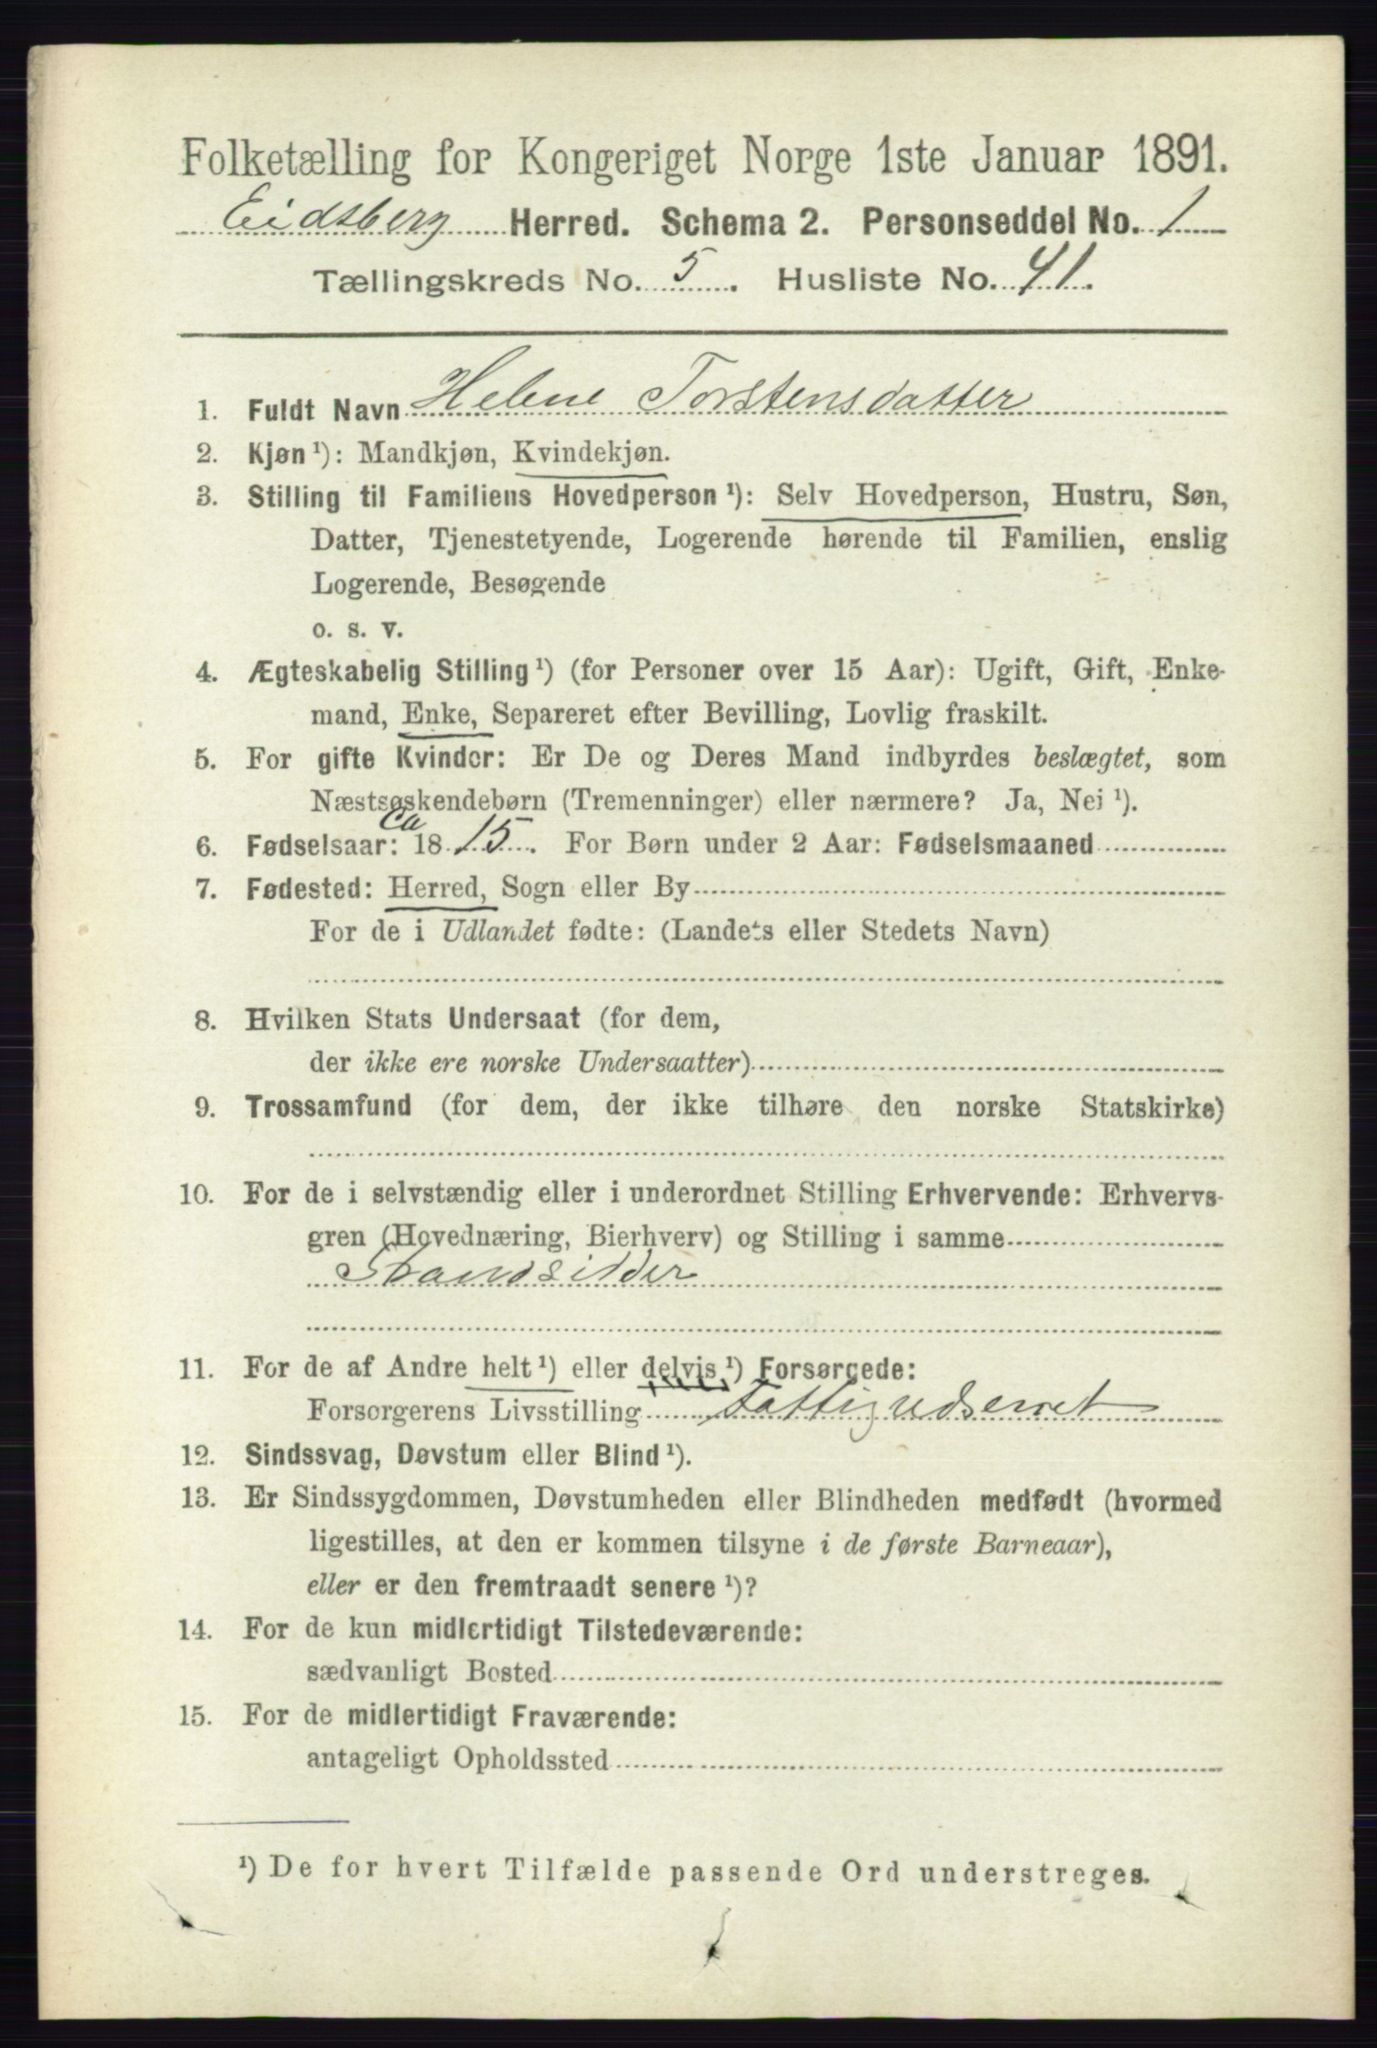 Folketælling for Kongeriget Norge 1ste Januar 1891.
Eidsberg Herred. Schema 2. Personseddel No. 1
Tællingskreds No. 5. Husliste No. 41.
1. Fuldt Navn Helene Torstensdatter
2. Kjøn ¹): Mandkjøn, Kvindekjøn.
3. Stilling til Familiens Hovedperson ¹): Selv Hovedperson, Hustru, Søn,
Datter, Tjenestetyende, Logerende hørende til Familien, enslig
Logerende, Besøgende
o. s. v.
4. Ægteskabelig Stilling ¹) (for Personer over 15 Aar): Ugift, Gift, Enke-
mand, Enke, Separeret efter Bevilling, Lovlig fraskilt.
5. For gifte Kvinder: Er De og Deres Mand indbyrdes beslægtet, som
Næstsøskendebørn (Tremenninger) eller nærmere? Ja, Nei ¹).
6. Fødselsaar: ca 1815. For Børn under 2 Aar: Fødselsmaaned
7. Fødested: Herred, Sogn eller By
For de i Udlandet fødte: (Landets eller Stedets Navn)
8. Hvilken Stats Undersaat (for dem,
der ikke ere norske Undersaatter)
9. Trossamfund (for dem, der ikke tilhøre den norske Statskirke)
10. For de i selvstændig eller i underordnet Stilling Erhvervende: Erhvervs-
gren (Hovednæring, Bierhverv) og Stilling i samme
Strandsidder
11. For de af Andre helt ¹) eller delvis ¹) Forsørgede:
Forsørgerens Livsstilling
12. Sindssvag, Døvstum eller Blind ¹).
13. Er Sindssygdommen, Døvstumheden eller Blindheden medfødt (hvormed
ligestilles, at den er kommen tilsyne i de første Barneaar),
eller er den fremtraadt senere ¹)?
14. For de kun midlertidigt Tilstedeværende:
sædvanligt Bosted
15. For de midlertidigt Fraværende:
antageligt Opholdssted
¹) De for hvert Tilfælde passende Ord understreges.